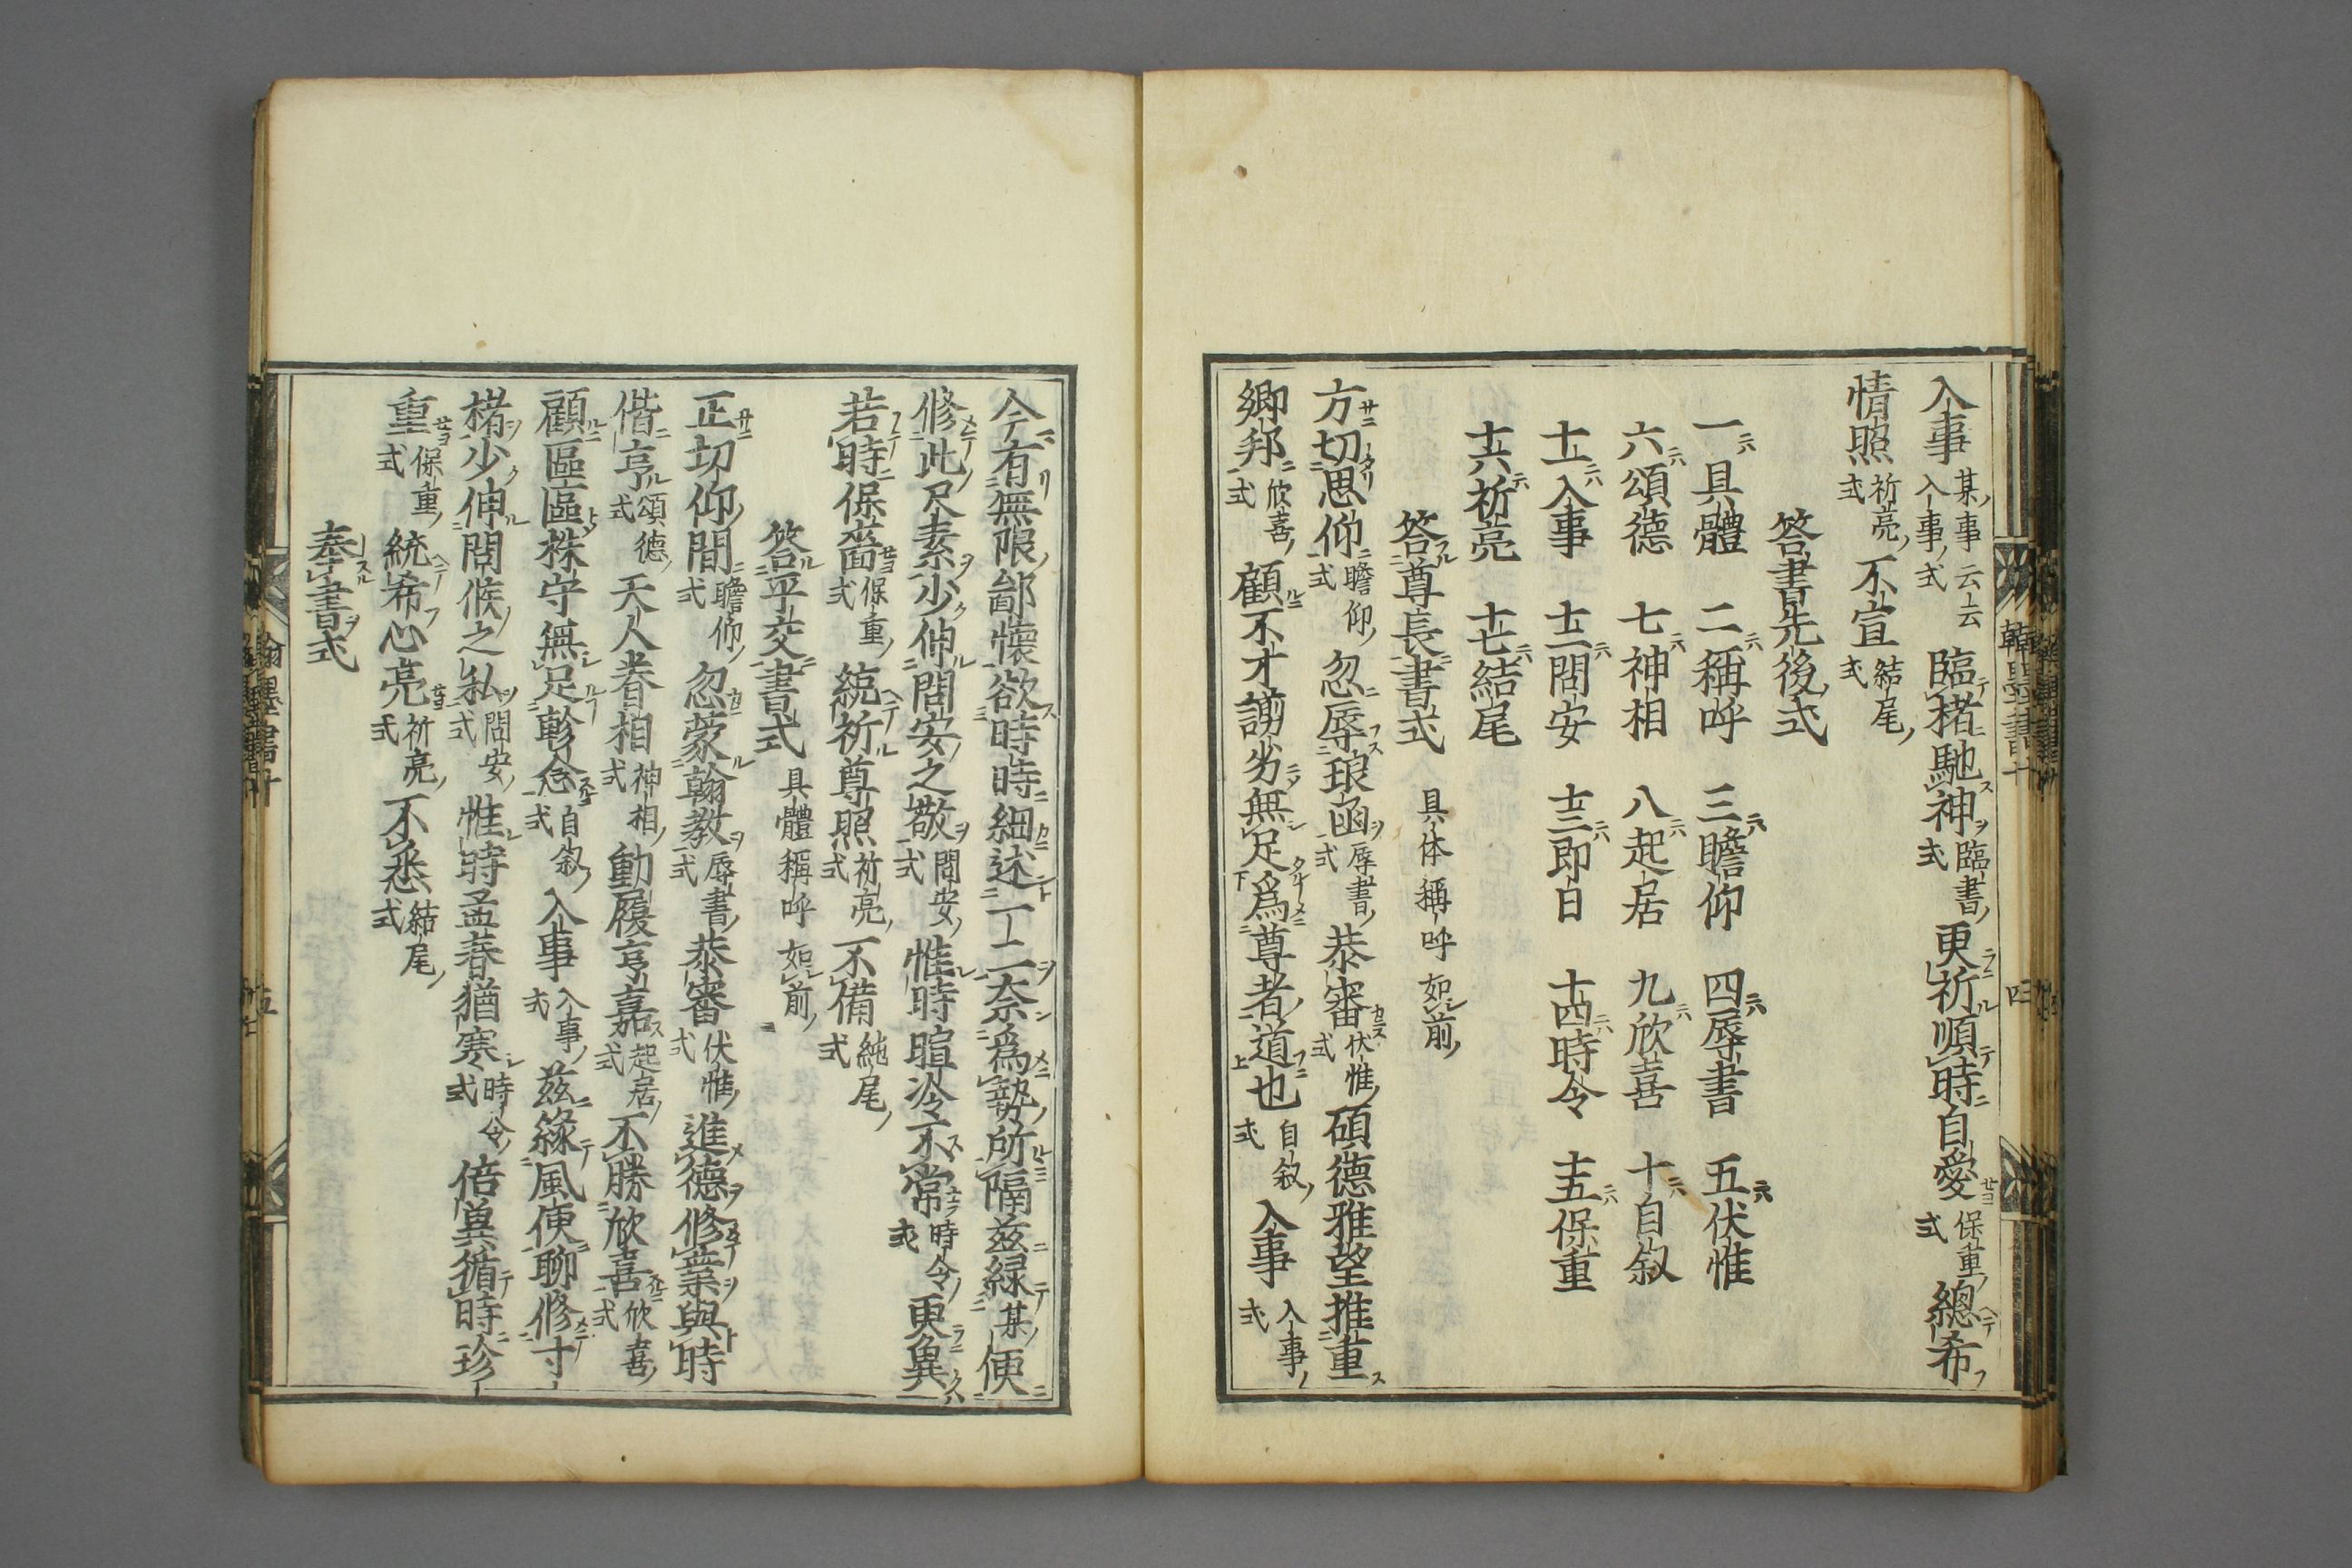 入事 某事云云 入事式 臨楮馳神 臨書式 更祈順時自愛 保重式 總希
情照 祈亮式 不宣 結尾式
答書先後式
一具體 二稱呼 三瞻仰 四辱書 五伏惟
六頌德 七神相 八起居 九欣喜 十自叙
十一入事 十二問安 十三即日 十四時令 十五保重
十六祈亮 十七結尾
答尊長書式 具体稱呼如前
方切思仰 瞻仰式 忽辱琅函 辱書式 恭審 伏惟式 碩德雅望推重
鄉邦 欣喜式 顧不才謭劣無足爲尊者道也 自叙式 入事 入事式
今有無限鄙懷欲時時細述一二奈爲勢所隔茲緣某便
修此尺素少伸問安之敬 問安式 惟時暄冷不常 時令式 更兾
若時保嗇 保重式 統祈尊照 祈亮式 不備 結尾式
答平交書式 具體稱呼如前
正切仰間 瞻仰式 忽蒙翰教 辱書式 恭審 伏惟式 進德修業與時
偕亨 頌德式 天人眷相 神相式 動履亨嘉 起居式 不勝欣喜 欣喜式
顧區區株守無足軫念 自叙式 入事 入事式 茲緣風便聊修寸
楮少伸問候之私 問安式 惟時孟春猶寒 時令式 倍兾循時珍
重 保重式 統希心亮 祈亮式 不悉 結尾式
奉書式
翰墨書十
四